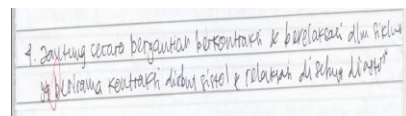 4. Jantung secara bergantian berkontraksi & berelaksasi dlm siklus
yg berirama kontraksi disbut sistol & relaksasi di sebut diastol